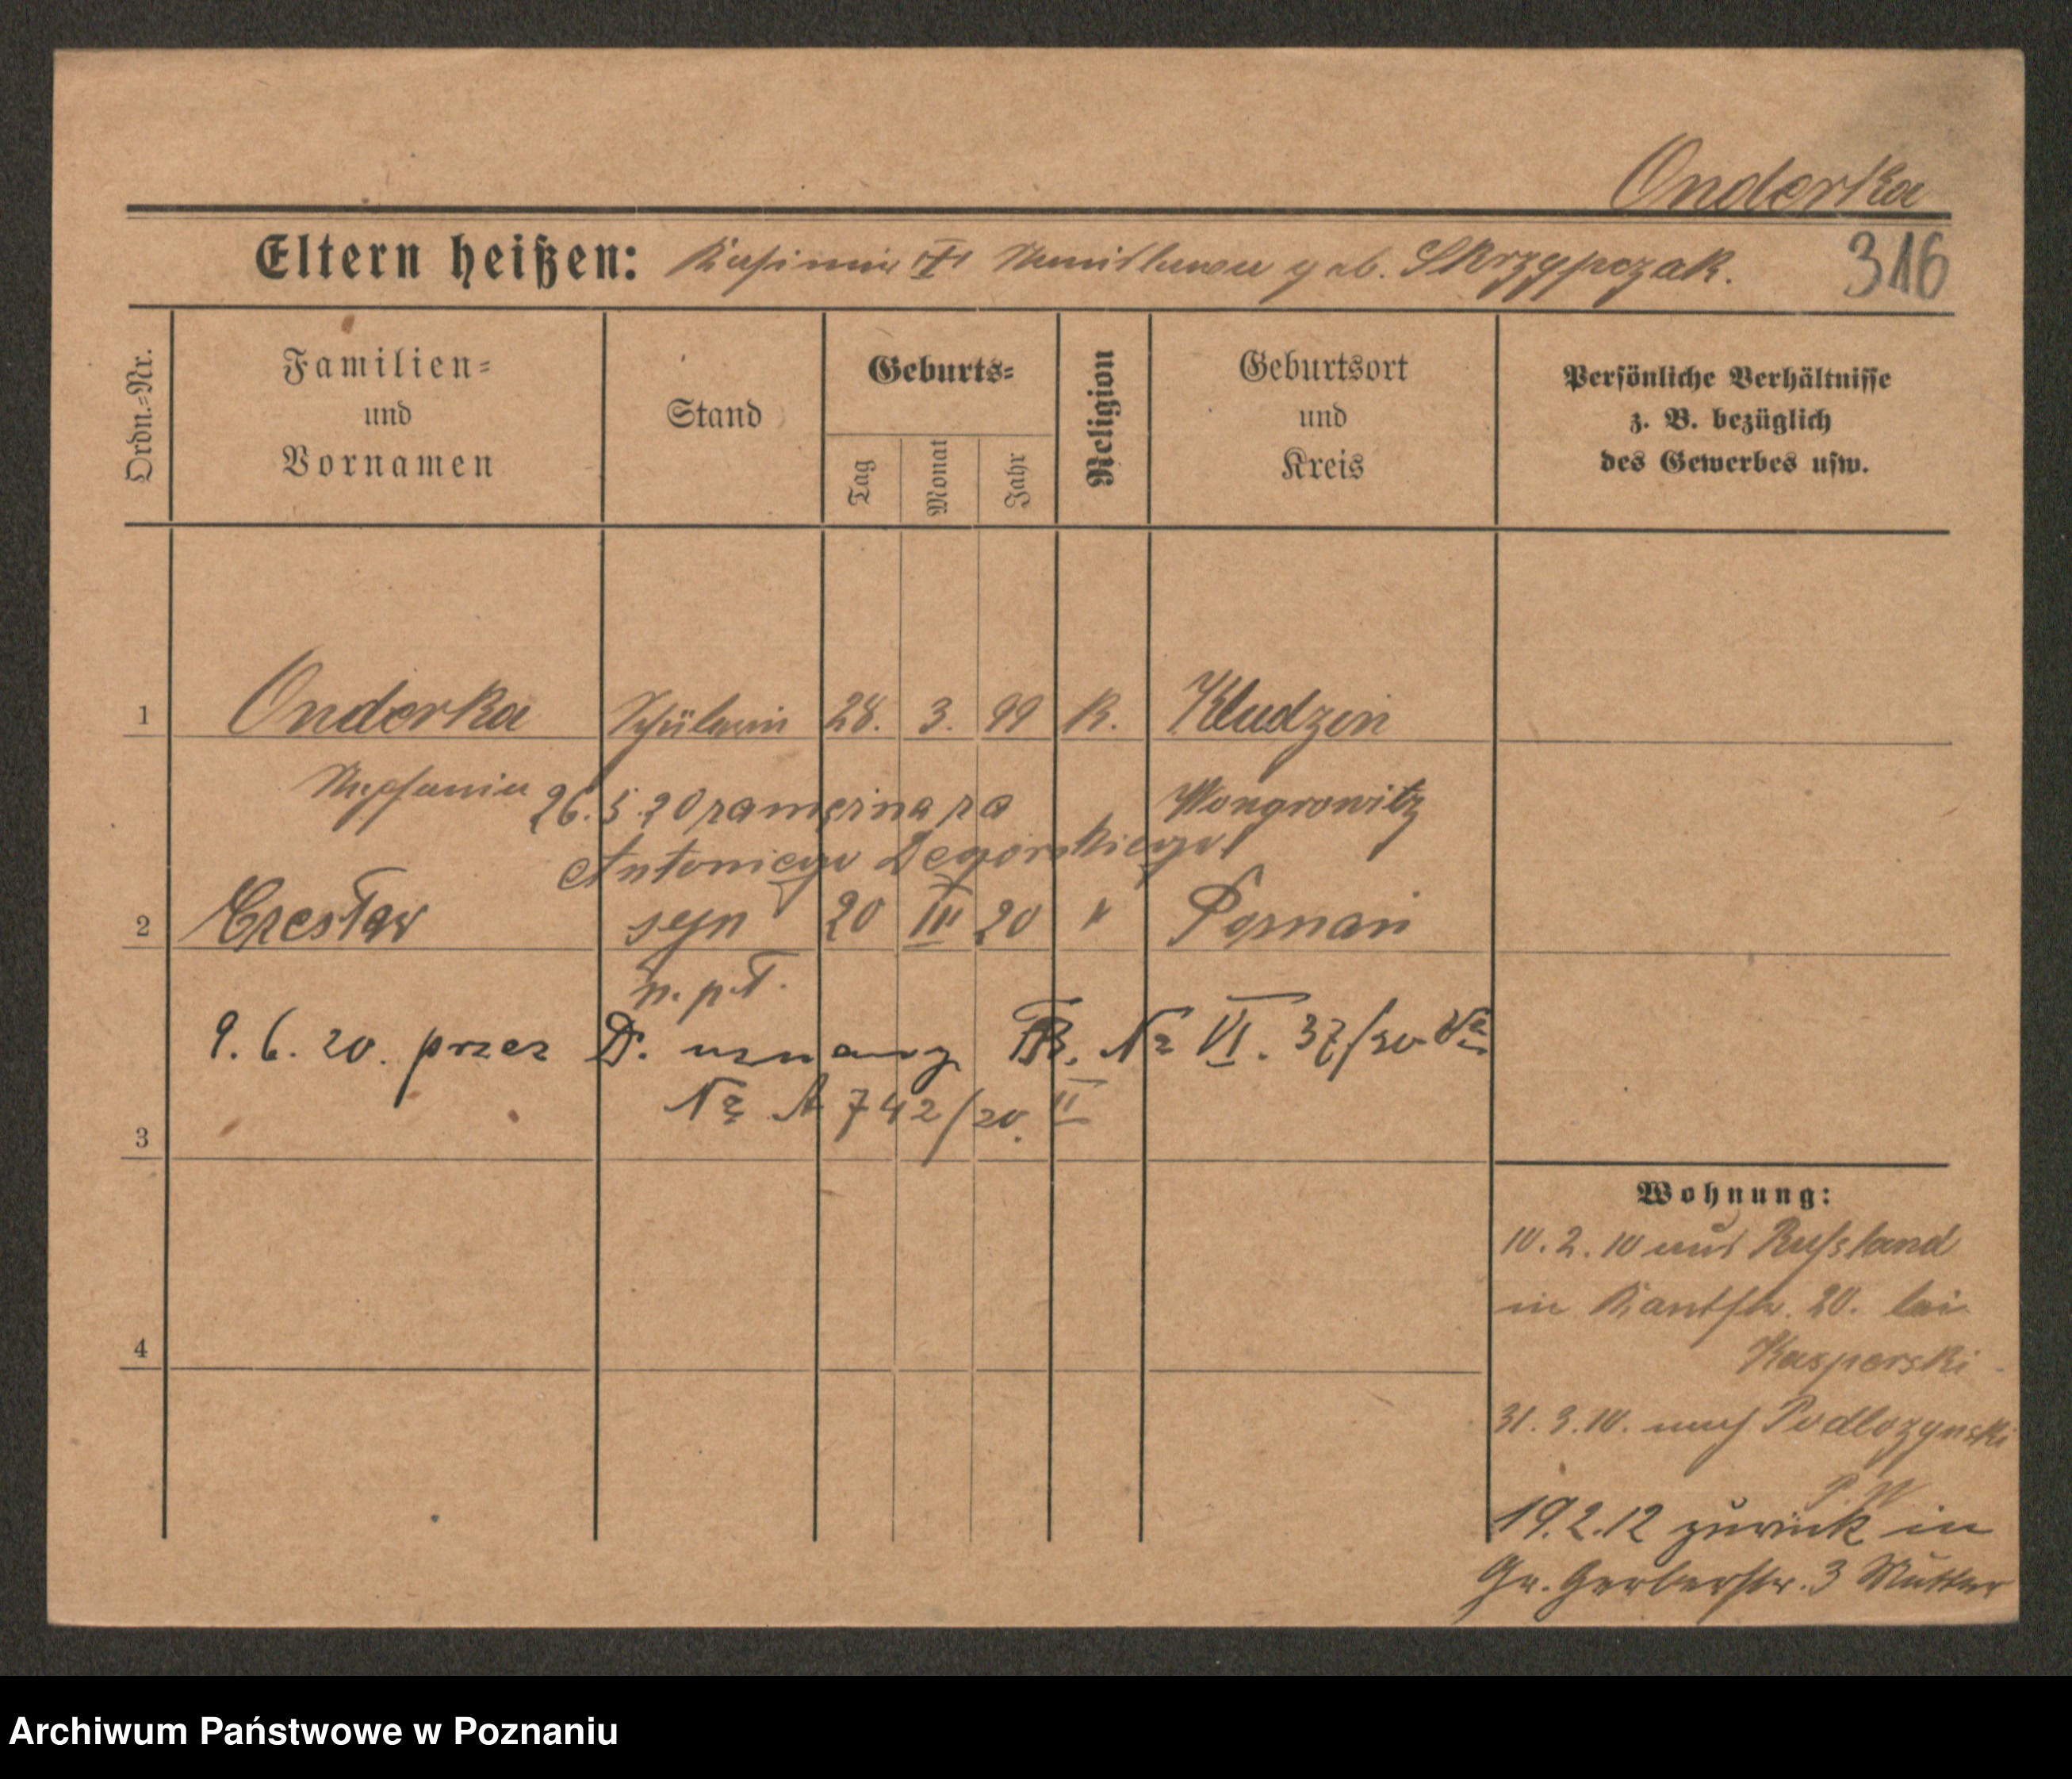 Onderka
Eltern heißen: Kasimir † Stanislawa geb. Skrzypczak.
316
Ordn.-Nr.
Familien-
und
Vornamen
Stand
Geburts-
Tag
Monat
Jahr
Religion
Geburtsort
und
Kreis
Persönliche Verhältnisse
z. B. bezüglich
des Gewerbes usw.
1 Onderka Schülerin 28. 3. 99 K. Kludzin
Stephania 26.5.20 zamężna za Wongrowitz
Antoniego Degórskiego
2 Czesław syn 20 III 20 " Poznań
n. pł.
9. 6. 20. przez D. uznany № VI. 37/20
№ A 742/20. II
3
4
Wohnung:
10. 2. 10 aus Russland
in Kantstr. 20. bei
Kasperski
31. 3. 10. nach Podlozynski
P. W
19.2.12 zurück in
Gr. Gerberstr. 3 Mutter
Archiwum Państwowe w Poznaniu